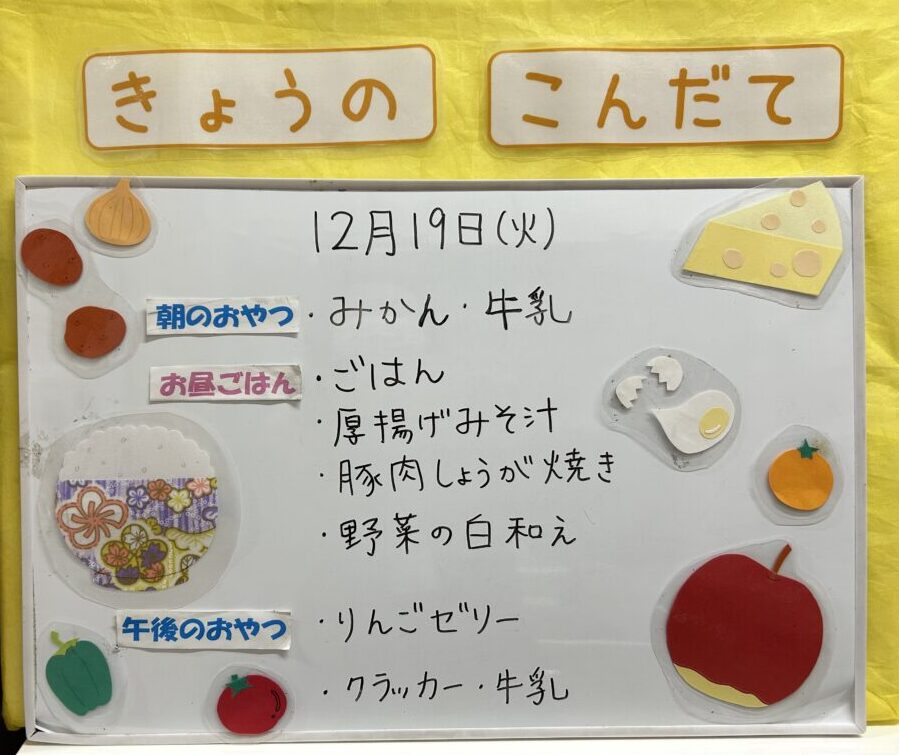 きょうの こんだて
12月19日(火)
朝のおやつ ・みかん・牛乳
お昼ごはん ・ごはん
・厚揚げみそ汁
・豚肉しょうが焼き
・野菜の白和え
午後のおやつ ・りんごゼリー
・クラッカー・牛乳